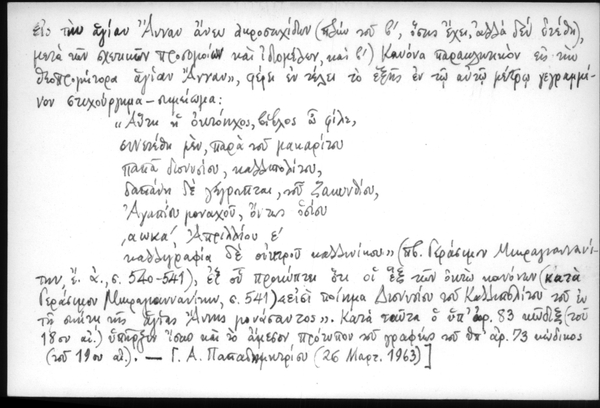 εἰς τὴν ἁγίαν Ἄνναν ἄνευ ἀκροστιχίδων (πλὴν τοῦ β΄, ὅστις ἔχει, ἀλλὰ δὲν ἐτέθη),
μετὰ τῶν σχετικῶν προσομοίων καὶ ἰδιομέλων, καὶ β΄) Κανόνα παρακλητικὸν εἰς τὴν
θεοπρομήτορα ἁγίαν Ἄνναν», φέρει ἐν τέλει τὸ ἑξῆς ἐν τῷ αὐτῷ μέτρῳ γεγραμμέ-
νον στιχούργημα – σημείωμα:
«Αὕτη ἡ ὀκτώηχος, βίβλος ὦ φίλε,
συνετέθη μὲν, παρὰ τοῦ μακαρίτου
παπᾶ Διονυσίου, καλλιπολίτου,
δαπάνῃ δὲ γέγραπται, τοῦ Ζακυνθίου,
Ἀγαπίου μοναχοῦ, ὄντως ὁσίου
͵αωκα΄ Ἀπριλλίου ε΄
καλλιγραφία δὲ οἰκτροῦ καλλινίκου» (πβ. Γεράσιμον Μικραγιαννανί-
την, ἔ. ἀ., σ. 540-541), ἐξ οὗ προκύπτει ὅτι οἱ ἓξ τῶν ὀκτὼ κανόνων (κατὰ
Γεράσιμον Μικραγιαννανίτην, σ. 541) «εἰσὶ ποίημα Διονυσίου τοῦ Καλλιπολίτου τοῦ ἐν
τῇ σκήτῃ τῆς ἁγίας Ἄννης μονάσαντος». Κατὰ ταῦτα ὁ ὑπ' ἀρ. 83 κῶδιξ (τοῦ
18ου αἰ.) ὑπῆρξεν ἴσως καὶ τὸ ἄμεσον πρότυπον τοῦ γραφέως τοῦ ὑπ' ἀρ. 73 κώδικος
(τοῦ 19ου αἰ.). — Γ. Α. Παπαδημητρίου (26 Μαρτ. 1963)]